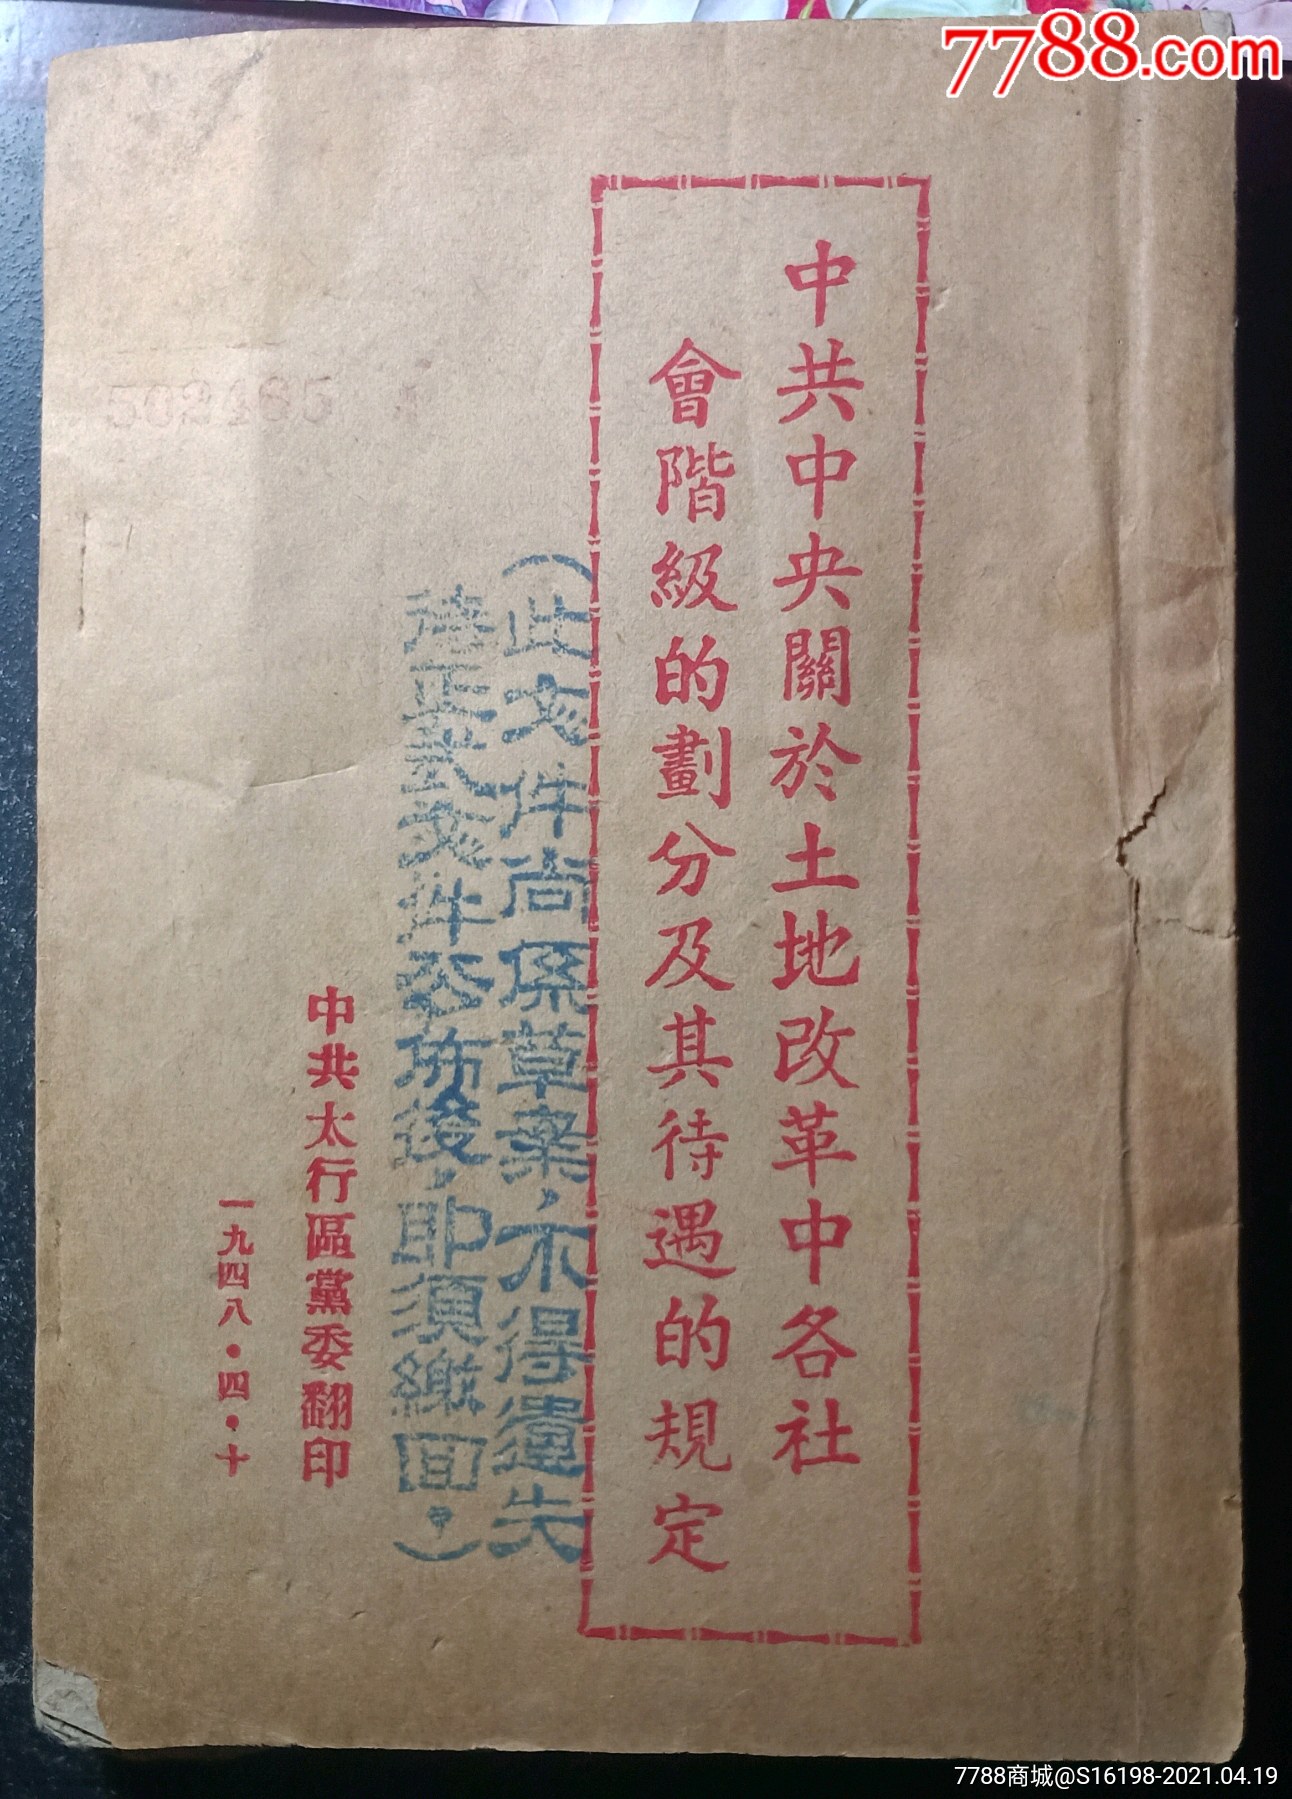 7788.com
中共中央關於土地改革中各社
會階級的劃分及其待遇的規定
（此文件尚係草案，不得遺失
待正式文件公佈後，即須繳回。）
中共太行區黨委翻印
一九四八·四·十
7788商城@S16198-2021.04.19